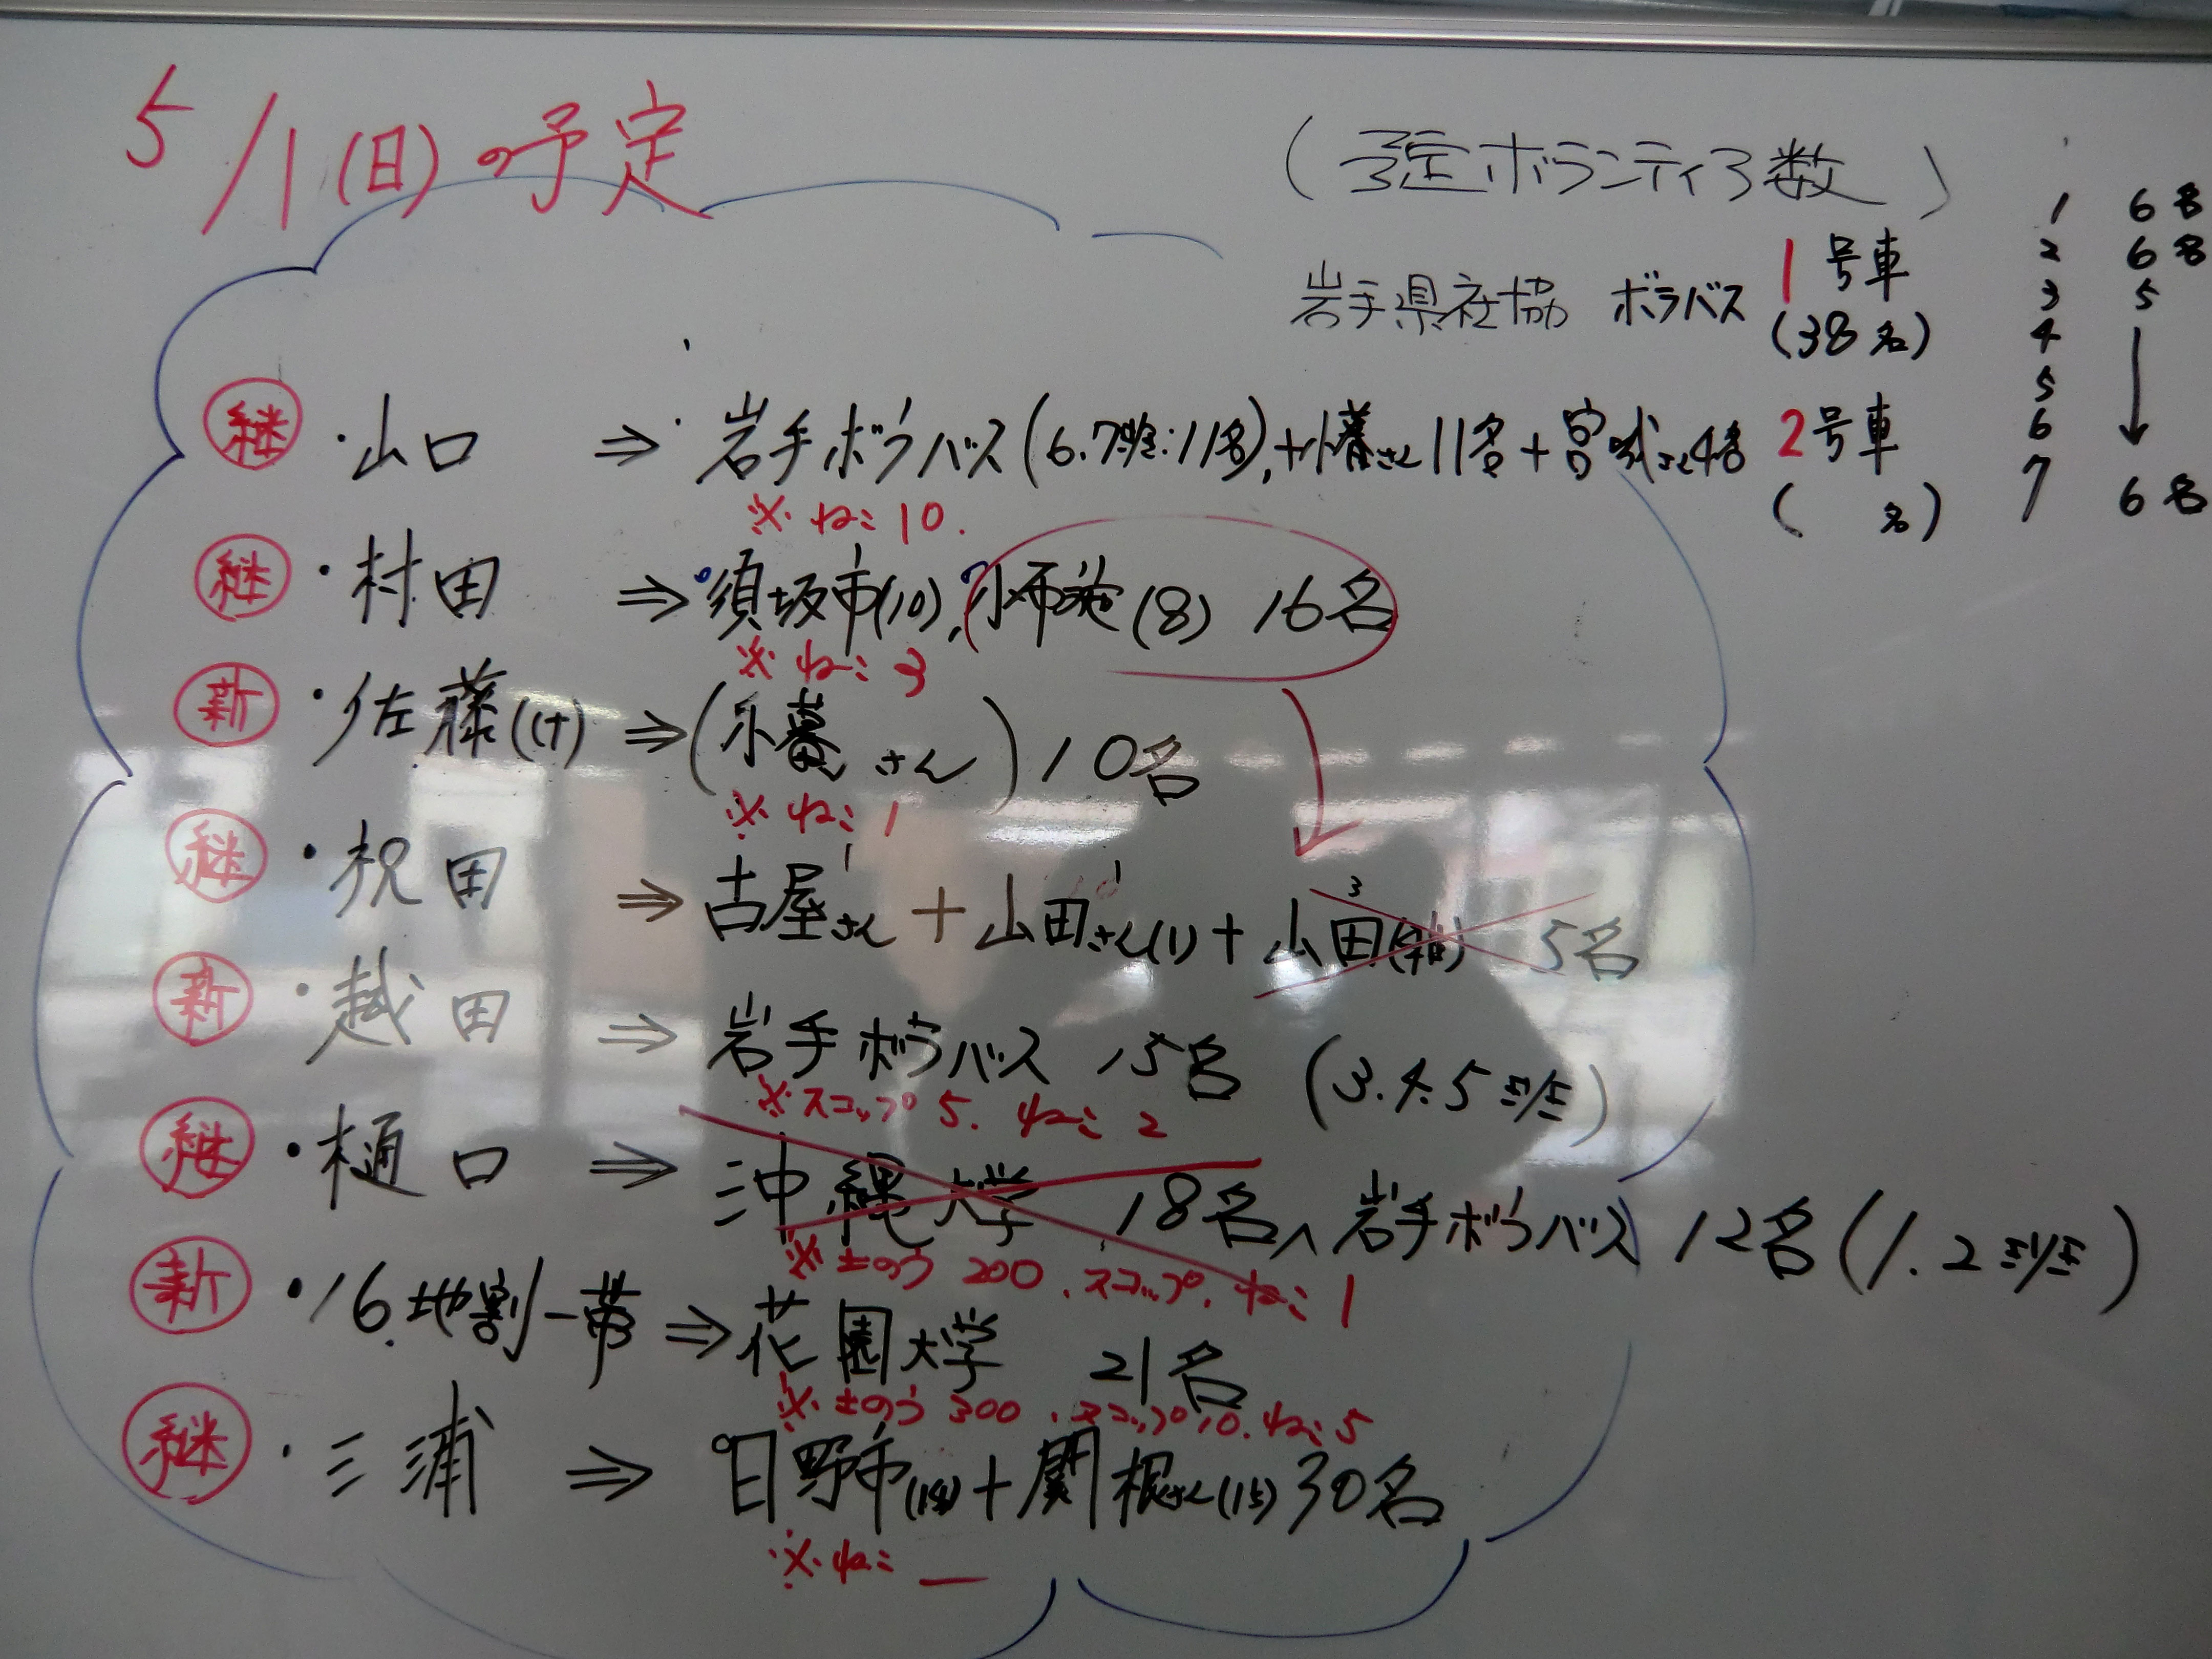 5/1(日)の予定
(予定ボランティア数)
岩手県社協 ボラバス 1号車 (38名)
2号車 ( 名)
1 6名
2 6名
3 5
4
5
6
7 6名
継 ・山口 ⇒ 岩手ボラバス(6.7班:11名),+小暮さん11名+宮城さん4名
※ ねこ10.
継 ・村田 ⇒ 須坂市(10),小布施(8) 16名
※ ねこ3
新 ・佐藤(け) ⇒ (小暮さん) 10名
※ ねこ1
継 ・祝田 ⇒ 古屋さん + 山田さん(1) + 山田 5名
新 ・越田 ⇒ 岩手ボラバス 15名 (3.4.5班)
※スコップ5. ねこ2
継 ・樋口 ⇒ 沖縄大学 18名、岩手ボラバス 12名(1.2班)
※土のう200、スコップ、ねこ1
新 ・16.地割一帯 ⇒ 花園大学 21名
※土のう300、スコップ10.ねこ5
継 ・三浦 ⇒ 日野市+関根さん(15) 30名
※ねこ